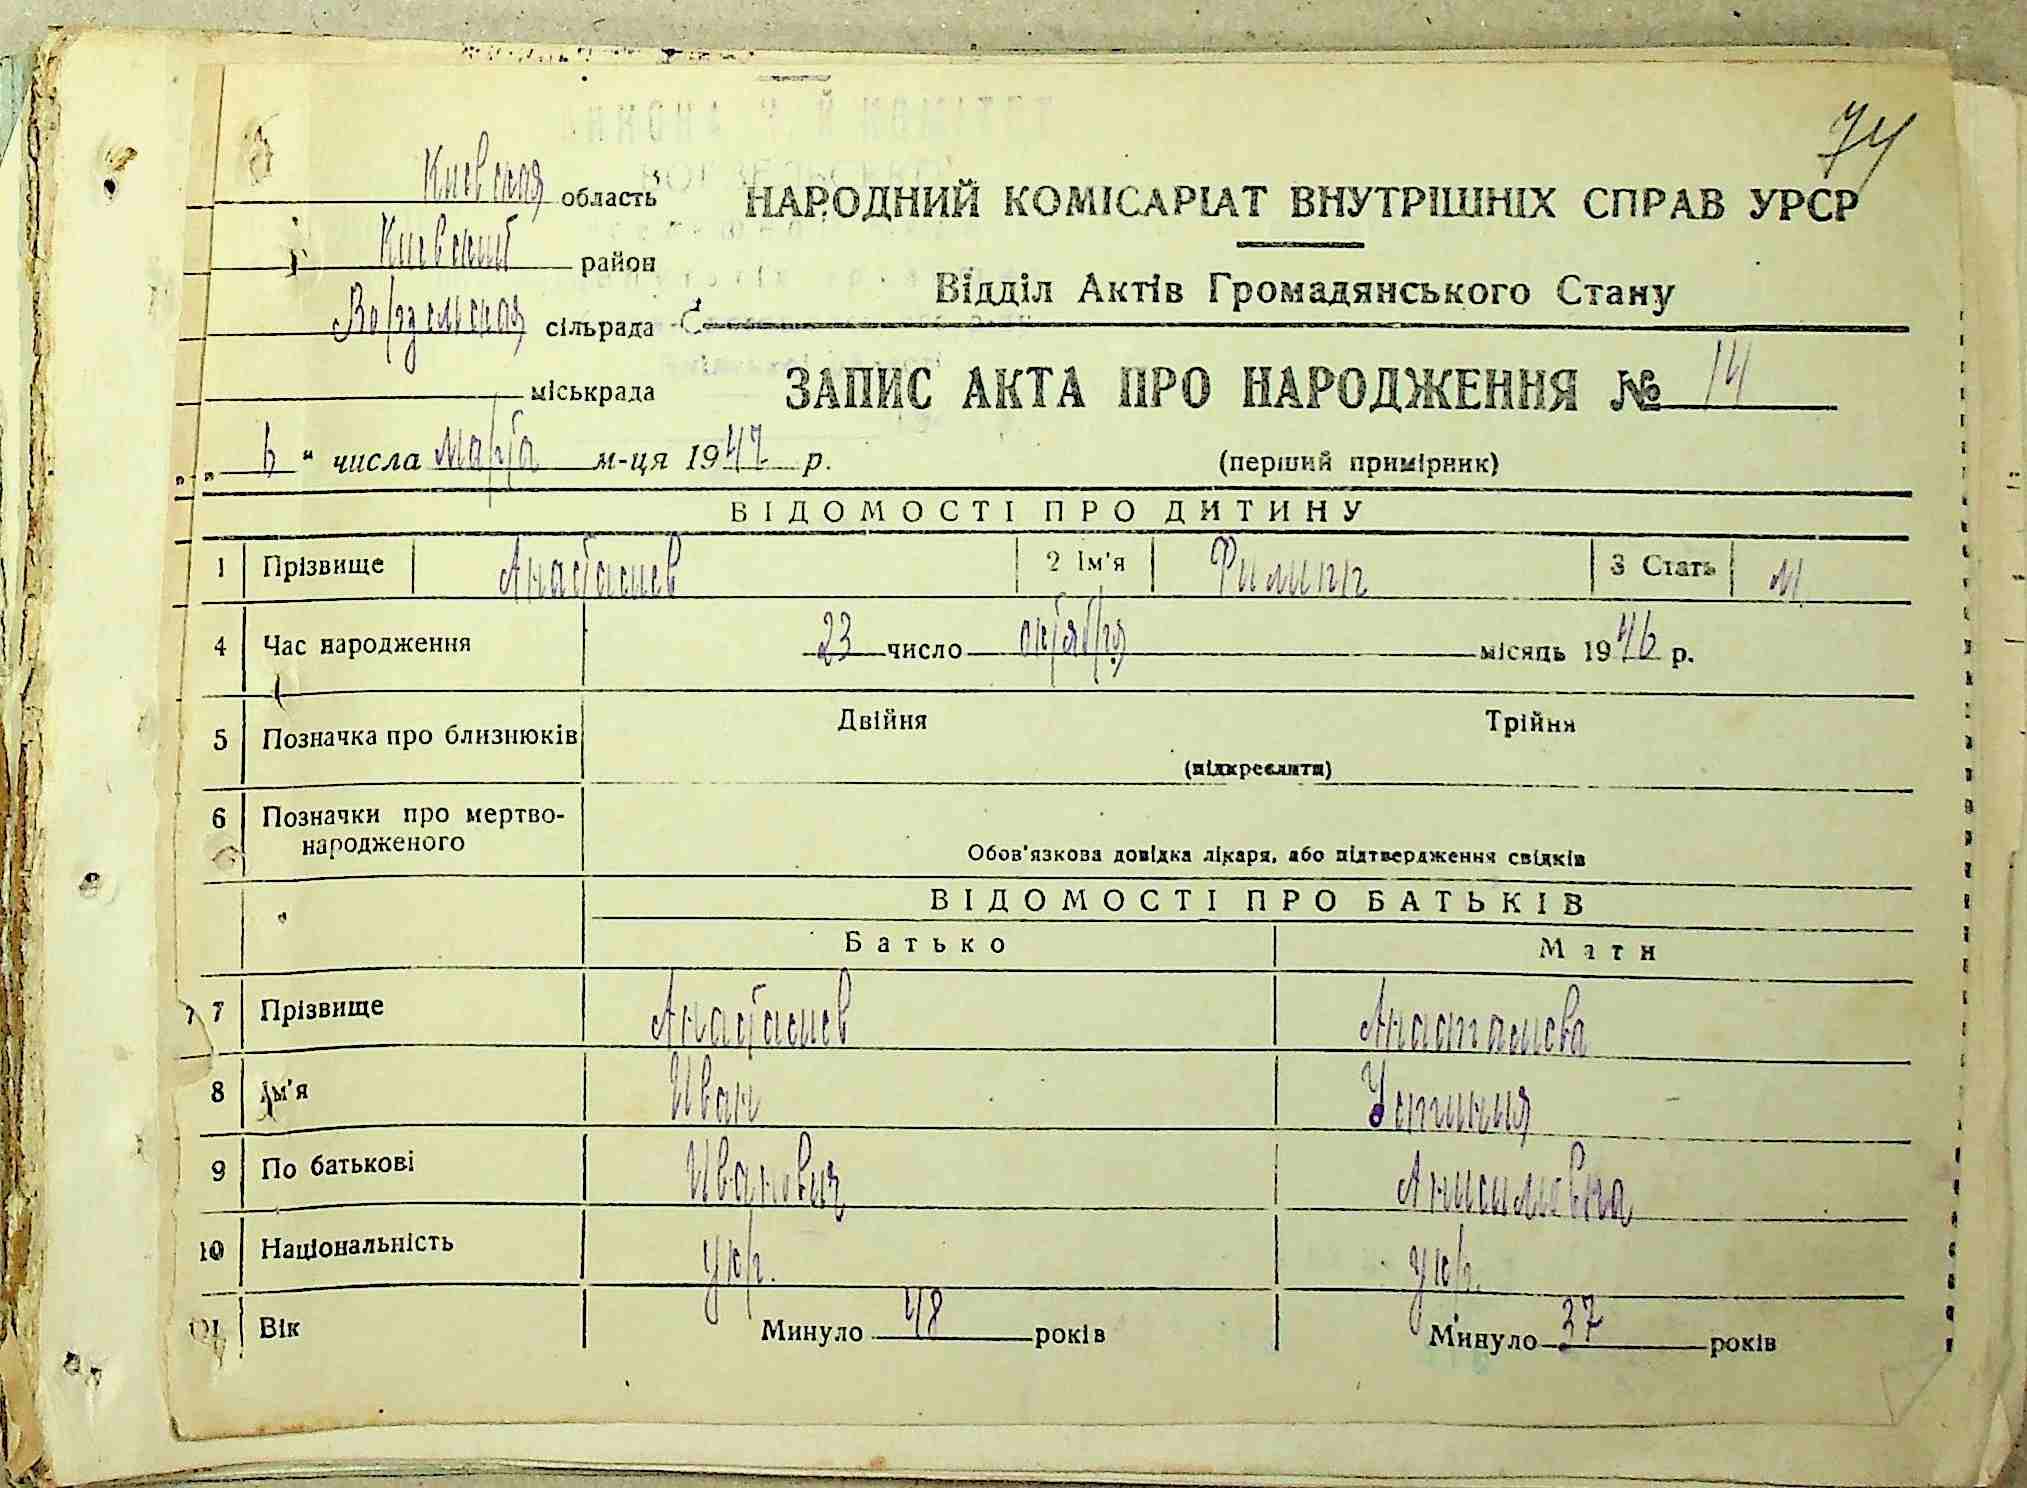 74
Киевская область
Киевский район
Ворзельская сільрада
міськрада
НАРОДНИЙ КОМІСАРІАТ ВНУТРІШНІХ СПРАВ УРСР
Відділ Актів Громадянського Стану
ЗАПИС АКТА ПРО НАРОДЖЕННЯ № 14
„ 6 “ числа марта м-ця 1947 р. (перший примірник)
ВІДОМОСТІ ПРО ДИТИНУ
1 Прізвище Анастасиев 2 Ім'я Филипп 3 Стать м.
4 Час народження 23 число октября місяць 1946 р.
5 Позначка про близнюків Двійня Трійня
(підкреслити)
6 Позначки про мертво-
народженого
Обов'язкова довідка лікаря, або підтвердження свідків
ВІДОМОСТІ ПРО БАТЬКІВ
Батько Мати
7 Прізвище Анастасиев Анастасиева
8 Ім'я Иван Устиния
9 По батькові Иванович Анисимовна
10 Національність укр. укр.
11 Вік Минуло 48 років Минуло 37 років